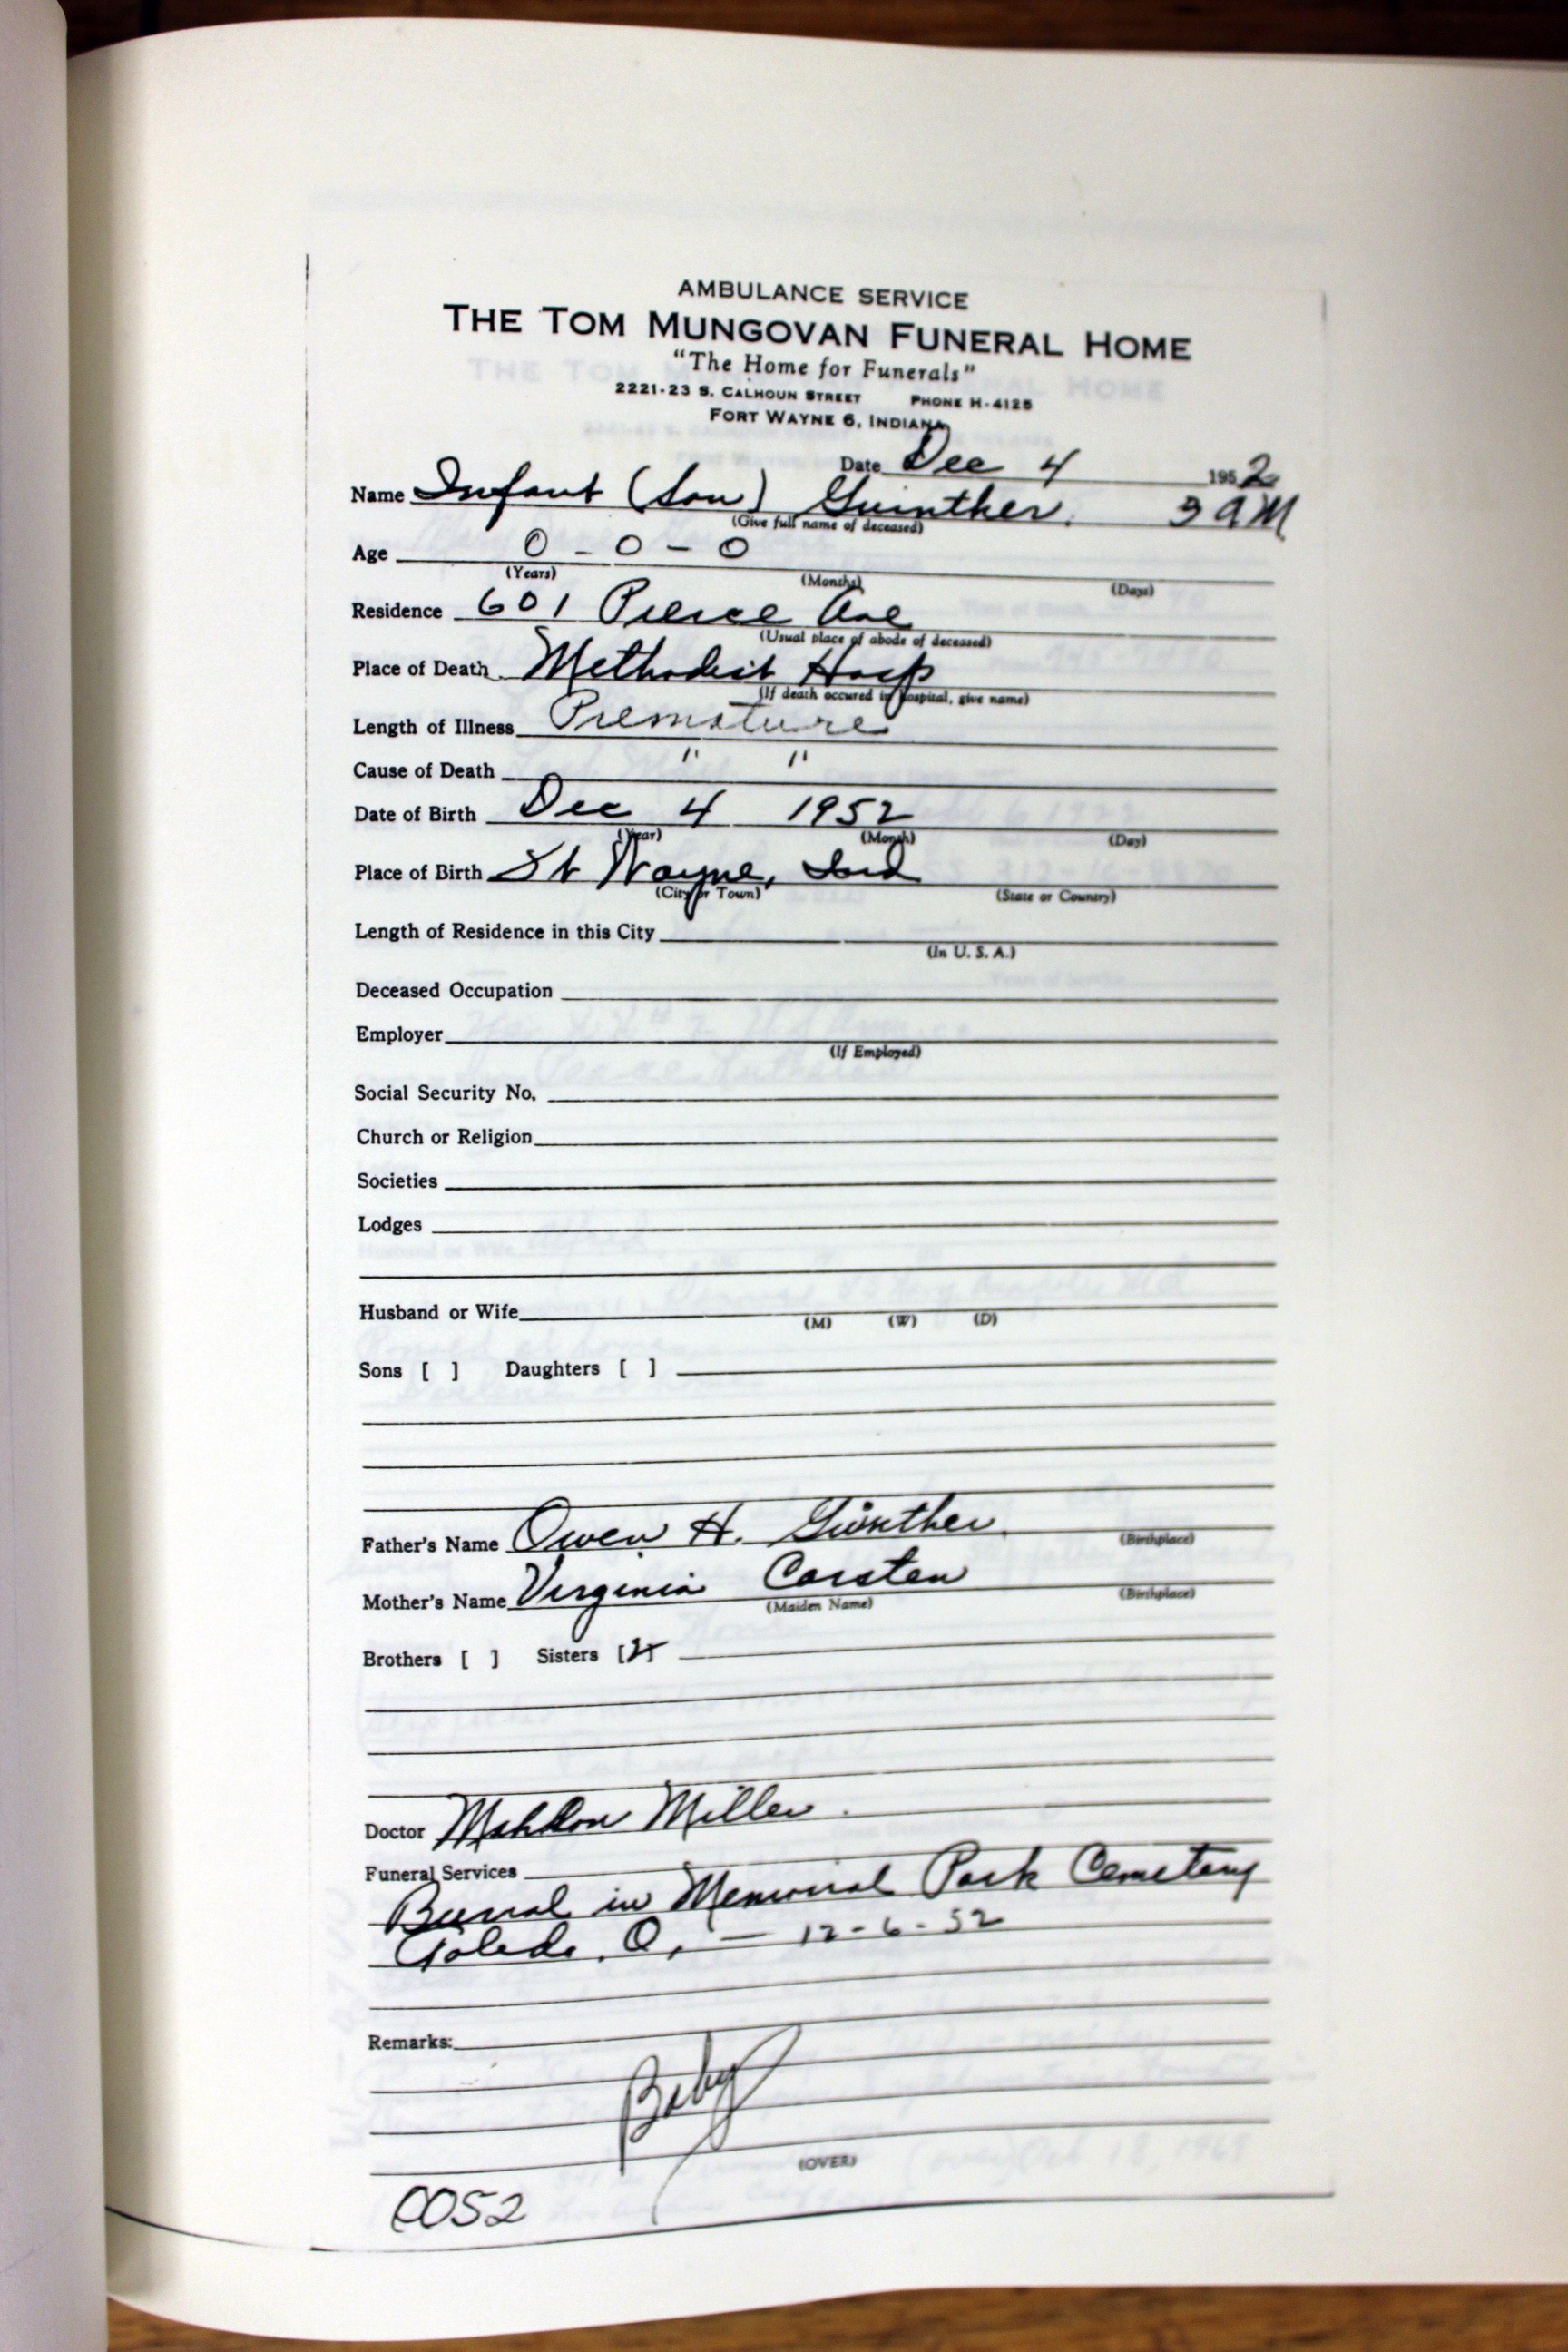 AMBULANCE SERVICE
THE TOM MUNGOVAN FUNERAL HOME
"The Home for Funerals"
2221-23 S. CALHOUN STREET PHONE H-4125
FORT WAYNE 6, INDIANA
Date Dec 4 1952
Name Infant (Son) Guinther. 3 AM
(Give full name of deceased)
Age 0 - 0 - 0
(Years) (Months) (Days)
Residence 601 Pierce Ave
(Usual place of abode of deceased)
Place of Death Methodist Hosp
(If death occured in hospital, give name)
Length of Illness Premature
Cause of Death " "
Date of Birth Dec 4 1952
(Year) (Month) (Day)
Place of Birth Ft Wayne, Ind
(City or Town) (State or Country)
Length of Residence in this City
(In U. S. A.)
Deceased Occupation
Employer
(If Employed)
Social Security No.
Church or Religion
Societies
Lodges
Husband or Wife
(M) (W) (D)
Sons [ ] Daughters [ ]
Father's Name Owen H. Guinther
(Birthplace)
Mother's Name Virginia Carsten
(Maiden Name) (Birthplace)
Brothers [ ] Sisters [ ]
Doctor Mahlon Miller.
Funeral Services
Burial in Memorial Park Cemetery
Toledo, O, — 12-6-52
Remarks:
Baby
(OVER)
0052